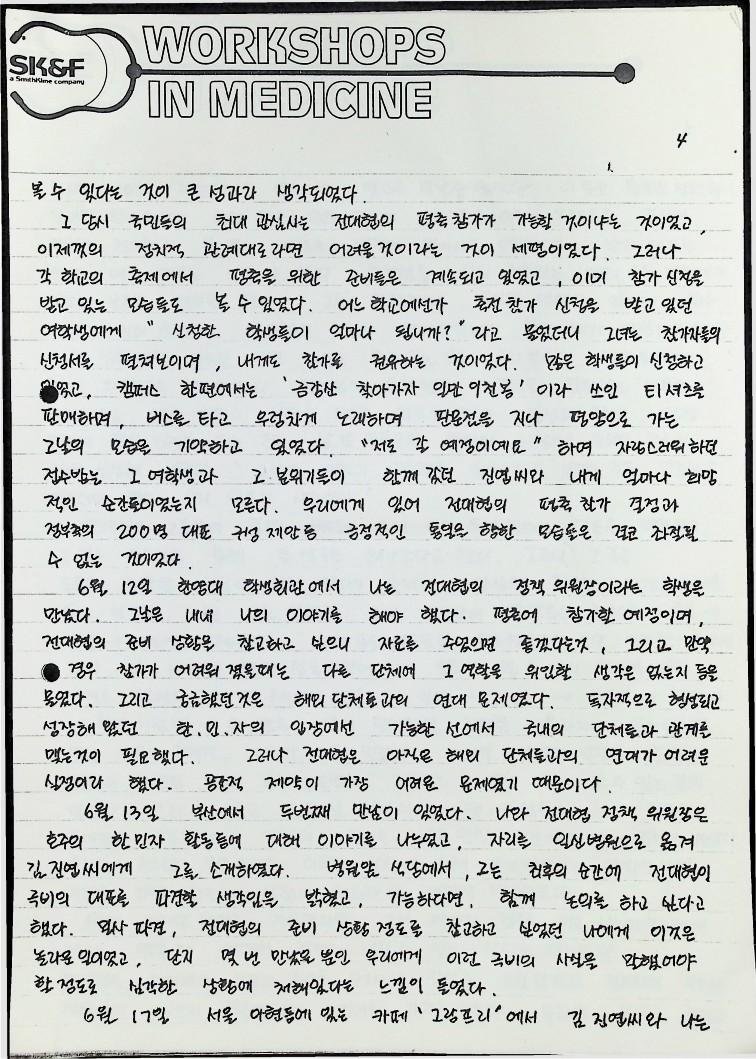 SK&F
a SmithKline company
WORKSHOPS
IN MEDICINE
4
볼 수 있다는 것이 큰 성과라 생각되었다.
그 당시 국민들의 최대 관심사는 전대협의 평축참가가 가능할 것이냐는 것이었고,
이제껏의 정치적 관례대로라면 어려울것이라는 것이 세평이었다. 그러나
각 학교의 축제에서 평축을 위한 준비들은 계속되고 있었고, 이미 참가 신청을
받고 있는 모습들도 볼 수 있었다. 어느 학교에선가 축전 참가 신청을 받고 있던
여학생에게 " 신청한 학생들이 얼마나 됩니까? " 라고 물었더니 그녀는 참가자들의
신청서를 펼쳐보이며, 내게도 참가를 권유하는 것이었다. 많은 학생들이 신청하고
있었고, 캠퍼스 한편에서는 ' 금강산 찾아가자 일만 이천봉 ' 이라 쓰인 티셔츠를
판매하며, 버스를 타고 우렁차게 노래하며 판문점을 지나 평양으로 가는
그날의 모습을 기약하고 있었다. "저도 갈 예정이예요" 하며 자랑스러워 하던
접수받는 그 여학생과 그 분위기들이 함께 갔던 진엽씨와 내게 얼마나 희망
적인 순간들이었는지 모른다. 우리에게 있어 전대협의 평축 참가 결정과
정부측의 200명 대표 구성 제안등 긍정적인 통일을 향한 모습들은 결코 좌절될
수 없는 것이었다.
6월 12일 한양대 학생회관에서 나는 전대협의 정책 위원장이라는 학생을
만났다. 그날은 내내 나의 이야기를 해야 했다. 평축에 참가할 예정이며,
전대협의 준비 상황을 참고하고 싶으니 자료를 주었으면 좋겠다는것, 그리고 만약
경우 참가가 어려워 졌을때는 다른 단체에 그 역할을 위임할 생각은 없는지 등을
물었다. 그리고 궁금했던것은 해외 단체들과의 연대 문제였다. 독자적으로 형성되고
성장해 왔던 한.민.자의 입장에선 가능한 선에서 국내의 단체들과 관계를
맺는것이 필요했다. 그러나 전대협은 아직은 해외 단체들과의 연대가 어려운
실정이라 했다. 공간적 제약이 가장 어려운 문제였기 때문이다.
6월 13일 부산에서 두번째 만남이 있었다. 나와 전대협 정책 위원장은
호주의 한민자 활동등에 대해 이야기를 나누었고, 자리를 일신병원으로 옮겨
김진엽씨에게 그를 소개하였다. 병원앞 식당에서, 그는 최후의 순간에 전대협이
극비의 대표를 파견할 생각임을 밝혔고, 가능하다면, 함께 논의를 하고 싶다고
했다. 밀사 파견, 전대협의 준비 상황 정도를 참고하고 싶었던 나에게 이것은
놀라운 일이었고, 단지 몇 번 만났을 뿐인 우리에게 이런 극비의 사실을 말했어야
할 정도로 심각한 상황에 처해있다는 느낌이 들었다.
6월 17일 서울 아현동에 있는 카페 ' 그랑프리 ' 에서 김 진엽씨와 나는